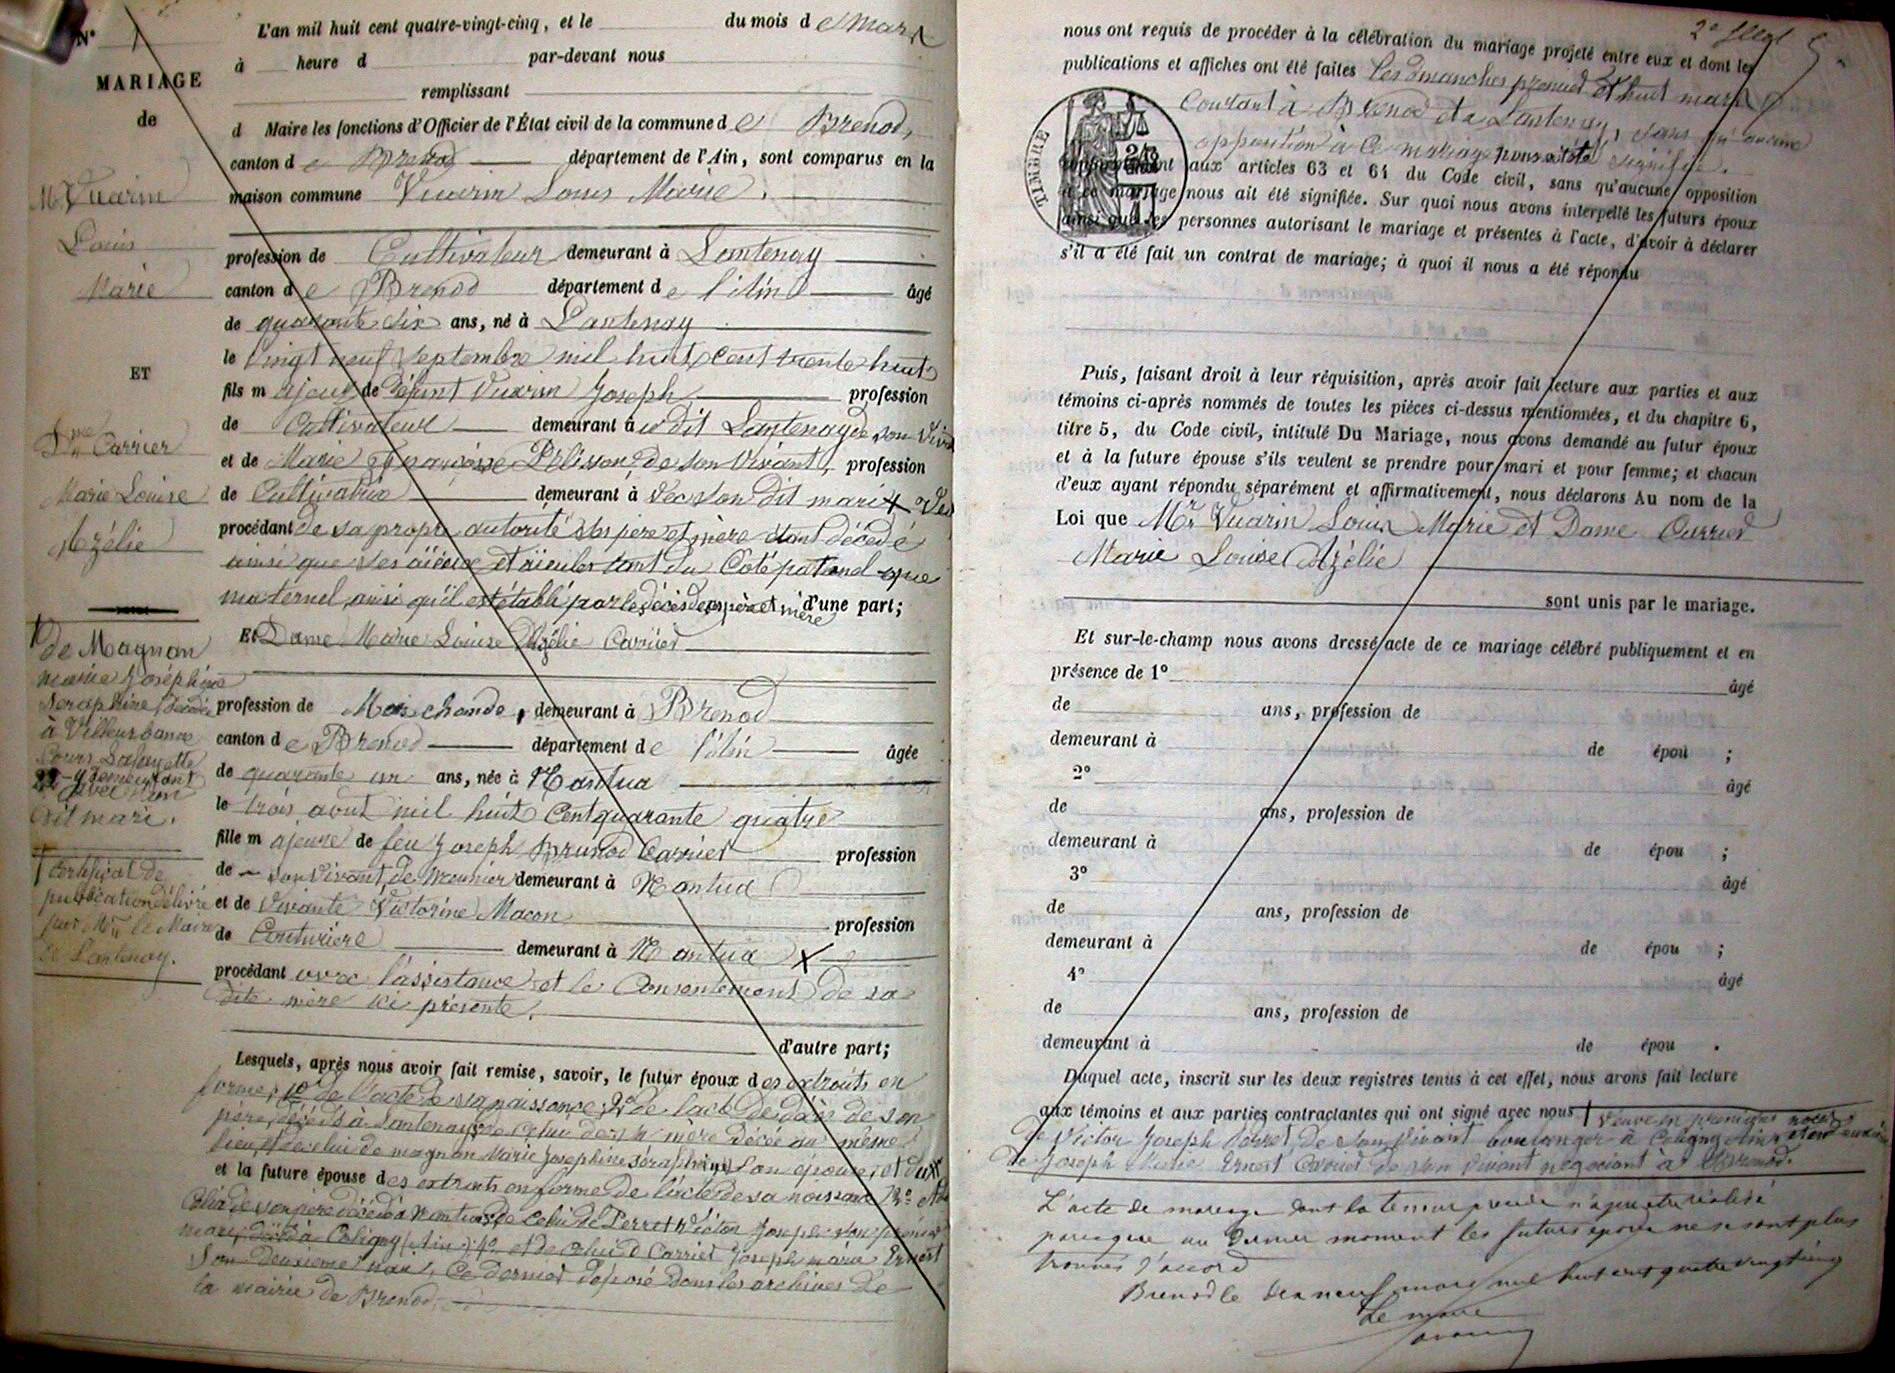 N° 1
MARIAGE
de
Mr Vuarin
Louis
Marie
ET
Dme Carrier
Marie Louise
Azélie
de Magnan
marie Joséphine
Séraphine décédée
à Villeurbanne
Cours Lafayette
22 - y demeurant
avec son
dit mari.
certificat de
publication délivré
par Mr le Maire
de Lantenay.
L'an mil huit cent quatre-vingt-cinq, et le du mois de Mars
à heure d par-devant nous
remplissant
d Maire les fonctions d'Officier de l'État civil de la commune de Brenod,
canton de Brenod département de l'Ain, sont comparus en la
maison commune Vuarin Louis Marie.
profession de Cultivateur demeurant à Lantenay
canton de Brenod département de l'Ain âgé
de quarante six ans, né à Lantenay
le vingt neuf Septembre mil huit cent trente huit
fils majeur de défunt Vuarin Joseph profession
de Cultivateur demeurant à udit Lantenay de son Viva
et de Marie Françoise Pelisson de son Vivant, profession
de Cultivatrice demeurant à vec son dit mari
procédant de sa propre autorité ses père et mère étant décédé
ainsi que ses aïeux et aïeules tant du Coté paternel que
maternel, ainsi qu'il est établi par les décès des père et mère d'une part;
Et Dame Marie Louise Azélie Carrier
profession de Marchande, demeurant à Brenod
canton de Brenod département de l'Ain âgée
de quarante un ans, née à Nantua
le trois aout mil huit Cent quarante quatre
fille majeure de feu Joseph Brunod Carrier profession
de son vivant de Meunier demeurant à Nantua
et de vivante Victorine Macon profession
de Couturiere demeurant à Nantua
procédant avec l'assistance et le Consentement de sa
dite mère ici présente.
d'autre part;
Lesquels, après nous avoir fait remise, savoir, le futur époux des extraits en
forme, 1° de l'acte de sa naissance, 2° de l'acte de décès de son
père, décédé à Lantenay, de celui de sa mère décée au même
lieu, et de celui de magnan Marie Josephine Séraphine son épouse,
et la future épouse des extraits en forme de l'acte de sa naissance
celui de son père décédé à Nantua, de celui de Perret Victor Joseph son premier
mari, décédé à Coligny (Ain) 4° et de celui de Carrier Joseph marie Ernest
son deuxieme mari, ce dernier déposé dans les archives de
la mairie de Brenod.
2e fllet 5.
nous ont requis de procéder à la célébration du mariage projeté entre eux et dont les
publications et affiches ont été faites les dimanches premier et huit mars
Courant à Brenod et à Lantenay, sans qu'aucune
opposition à ce mariage nous ait été signifiée.
TIMBRE
conformément aux articles 63 et 64 du Code civil, sans qu'aucune opposition
à ce mariage nous ait été signifiée. Sur quoi nous avons interpellé les futurs époux
ainsi que les personnes autorisant le mariage et présentes à l'acte, d'avoir à déclarer
s'il a été fait un contrat de mariage; à quoi il nous a été répondu
Puis, faisant droit à leur réquisition, après avoir fait lecture aux parties et aux
témoins ci-après nommés de toutes les pièces ci-dessus mentionnées, et du chapitre 6,
titre 5, du Code civil, intitulé Du Mariage, nous avons demandé au futur époux
et à la future épouse s'ils veulent se prendre pour mari et pour femme; et chacun
d'eux ayant répondu séparément et affirmativement, nous déclarons Au nom de la
Loi que Mr Vuarin Louis Marie et Dame Carrier
Marie Louise Azélie
sont unis par le mariage.
Et sur-le-champ nous avons dressé acte de ce mariage célébré publiquement et en
présence de 1° âgé
de ans, profession de
demeurant à de épou ;
2° âgé
de ans, profession de
demeurant à de épou ;
3° âgé
de ans, profession de
demeurant à de épou ;
4° âgé
de ans, profession de
demeurant à de épou .
Duquel acte, inscrit sur les deux registres tenus à cet effet, nous avons fait lecture
aux témoins et aux parties contractantes qui ont signé avec nous veuve en premières noces
de Victor Joseph Perret de son vivant boulanger à Coligny Ain et en
de Joseph Marie Ernest Carrier de son vivant négociant à Brenod.
L'acte de mariage dont la teneur précède n'a pu etre réalisé
parceque au dernier moment les futurs époux ne se sont plus
trouvés d'accord
Brenod le dix neuf mars mil huit cent quatre vingt cinq
Le maire